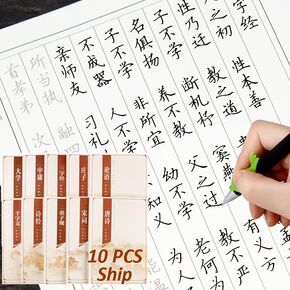 字经
之初 性本善
性乃迁 教之道
子不学 断机杼 窦燕 有义方
名俱扬 养不教 父之过 教不严
子不学 非所宜 幼不学 老何为
不成器
亲师友 习礼
所当执 融四
首孝弟 次
大学
中庸
三字经
庄子
论语
千字文
诗经
弟子规
宋词
唐诗
10 PCS
Ship